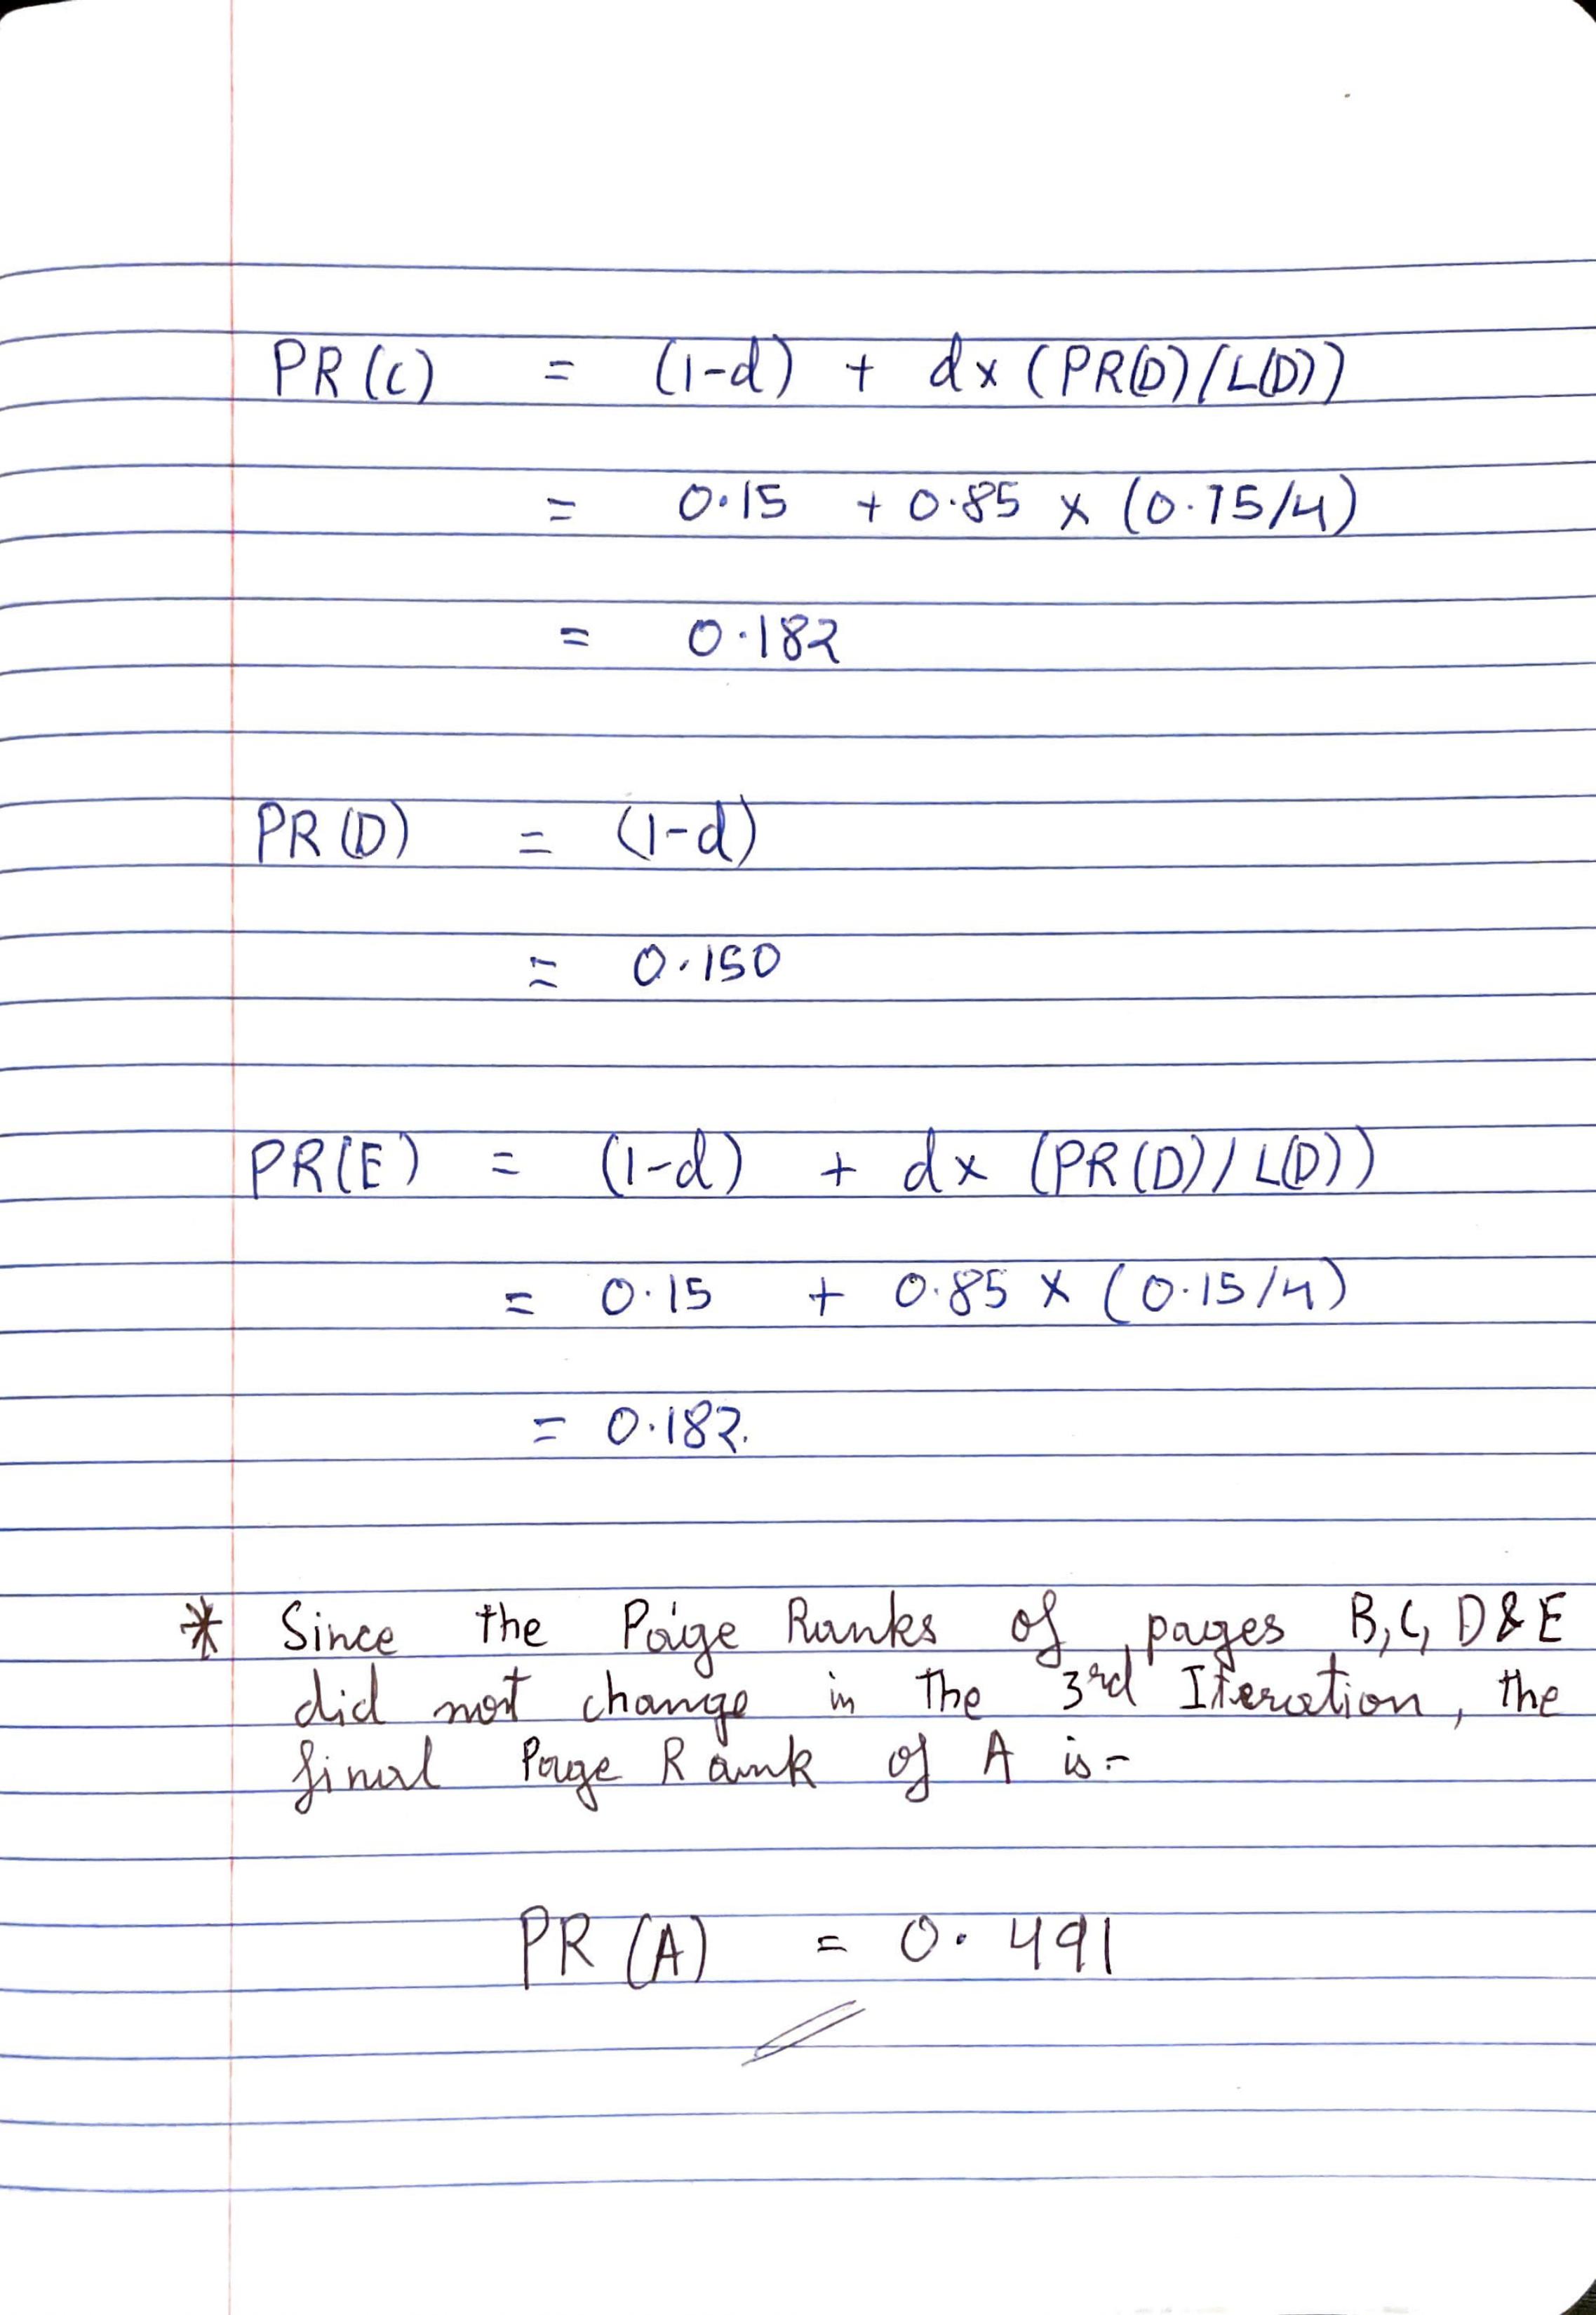 PR(C) = (1-d) + dx (PR(D)/L(D))
= 0.15 + 0.85 x (0.15/4)
= 0.182
PR(D) = (1-d)
= 0.150
PR(E) = (1-d) + dx (PR(D)/L(D))
= 0.15 + 0.85 x (0.15/4)
= 0.182.
* Since the Page Ranks of pages B, C, D & E
did not change in the 3rd Iteration, the
final Page Rank of A is:-
PR(A) = 0.491